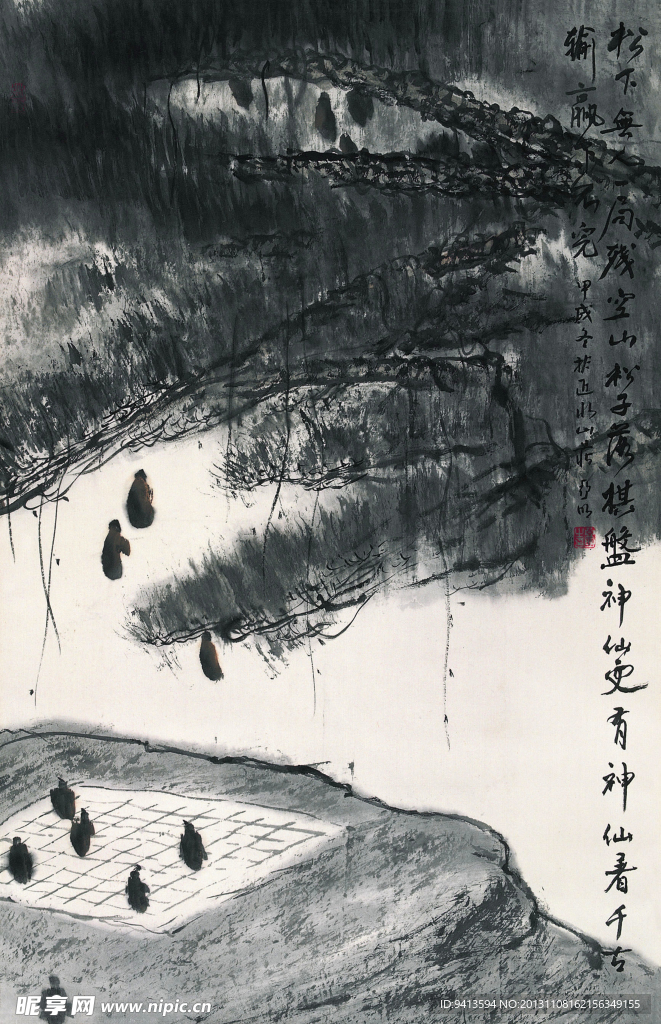 松下無人一局残空山松子落棋盤神仙更有神仙着千古
輸贏下不完 甲戌冬於近水山莊 亞明
昵享网 www.nipic.cn
ID:9413594 NO:20131108162156349155